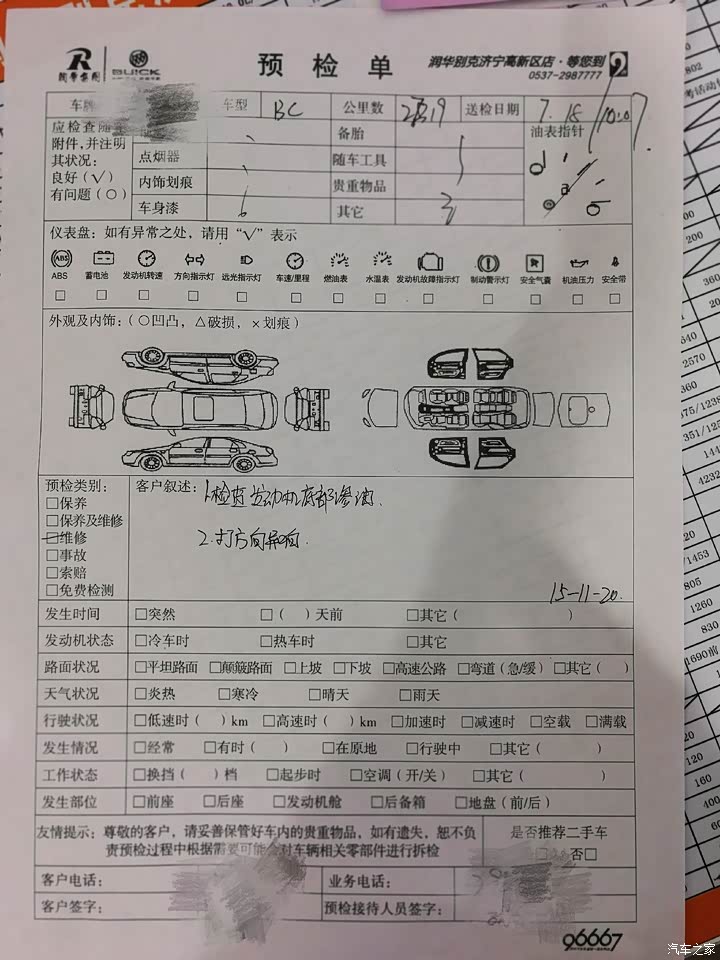 润华集团 BUICK 预检单 润华别克济宁高新区店·等您到
0537-2987777
车牌 车型 BC 公里数 送检日期 7.15
应检查随车 备胎 油表指针
附件,并注明 点烟器 随车工具
其状况:
良好(√) 内饰划痕 贵重物品
有问题(○) 车身漆 其它
仪表盘:如有异常之处,请用“√”表示
ABS 蓄电池 发动机转速 方向指示灯 远光指示灯 车速/里程 燃油表 水温表 发动机故障指示灯 制动警示灯 安全气囊 机油压力 安全带
□ □ □ □ □ □ □ □ □ □ □ □ □
外观及内饰:(○凹凸,△破损,×划痕)
预检类别: 客户叙述:1.检查发动机底部渗油.
□保养
□保养及维修
□维修 2.打方向异响.
□事故
□索赔
□免费检测 15-11-20.
发生时间 □突然 □( )天前 □其它( )
发动机状态 □冷车时 □热车时 □其它
路面状况 □平坦路面 □颠簸路面 □上坡 □下坡 □高速公路 □弯道(急/缓) □其它( )
天气状况 □炎热 □寒冷 □晴天 □雨天
行驶状况 □低速时( )km □高速时( )km □加速时 □减速时 □空载 □满载
发生情况 □经常 □有时( ) □在原地 □行驶中 □其它( )
工作状态 □换挡( )档 □起步时 □空调(开/关) □其它( )
发生部位 □前座 □后座 □发动机舱 □后备箱 □地盘(前/后)
友情提示:尊敬的客户,请妥善保管好车内的贵重物品,如有遗失,恕不负 是否推荐二手车
责预检过程中根据需要可能会对车辆相关零部件进行拆检 否□
客户电话: 业务电话:
客户签字: 预检接待人员签字:
96667
汽车之家